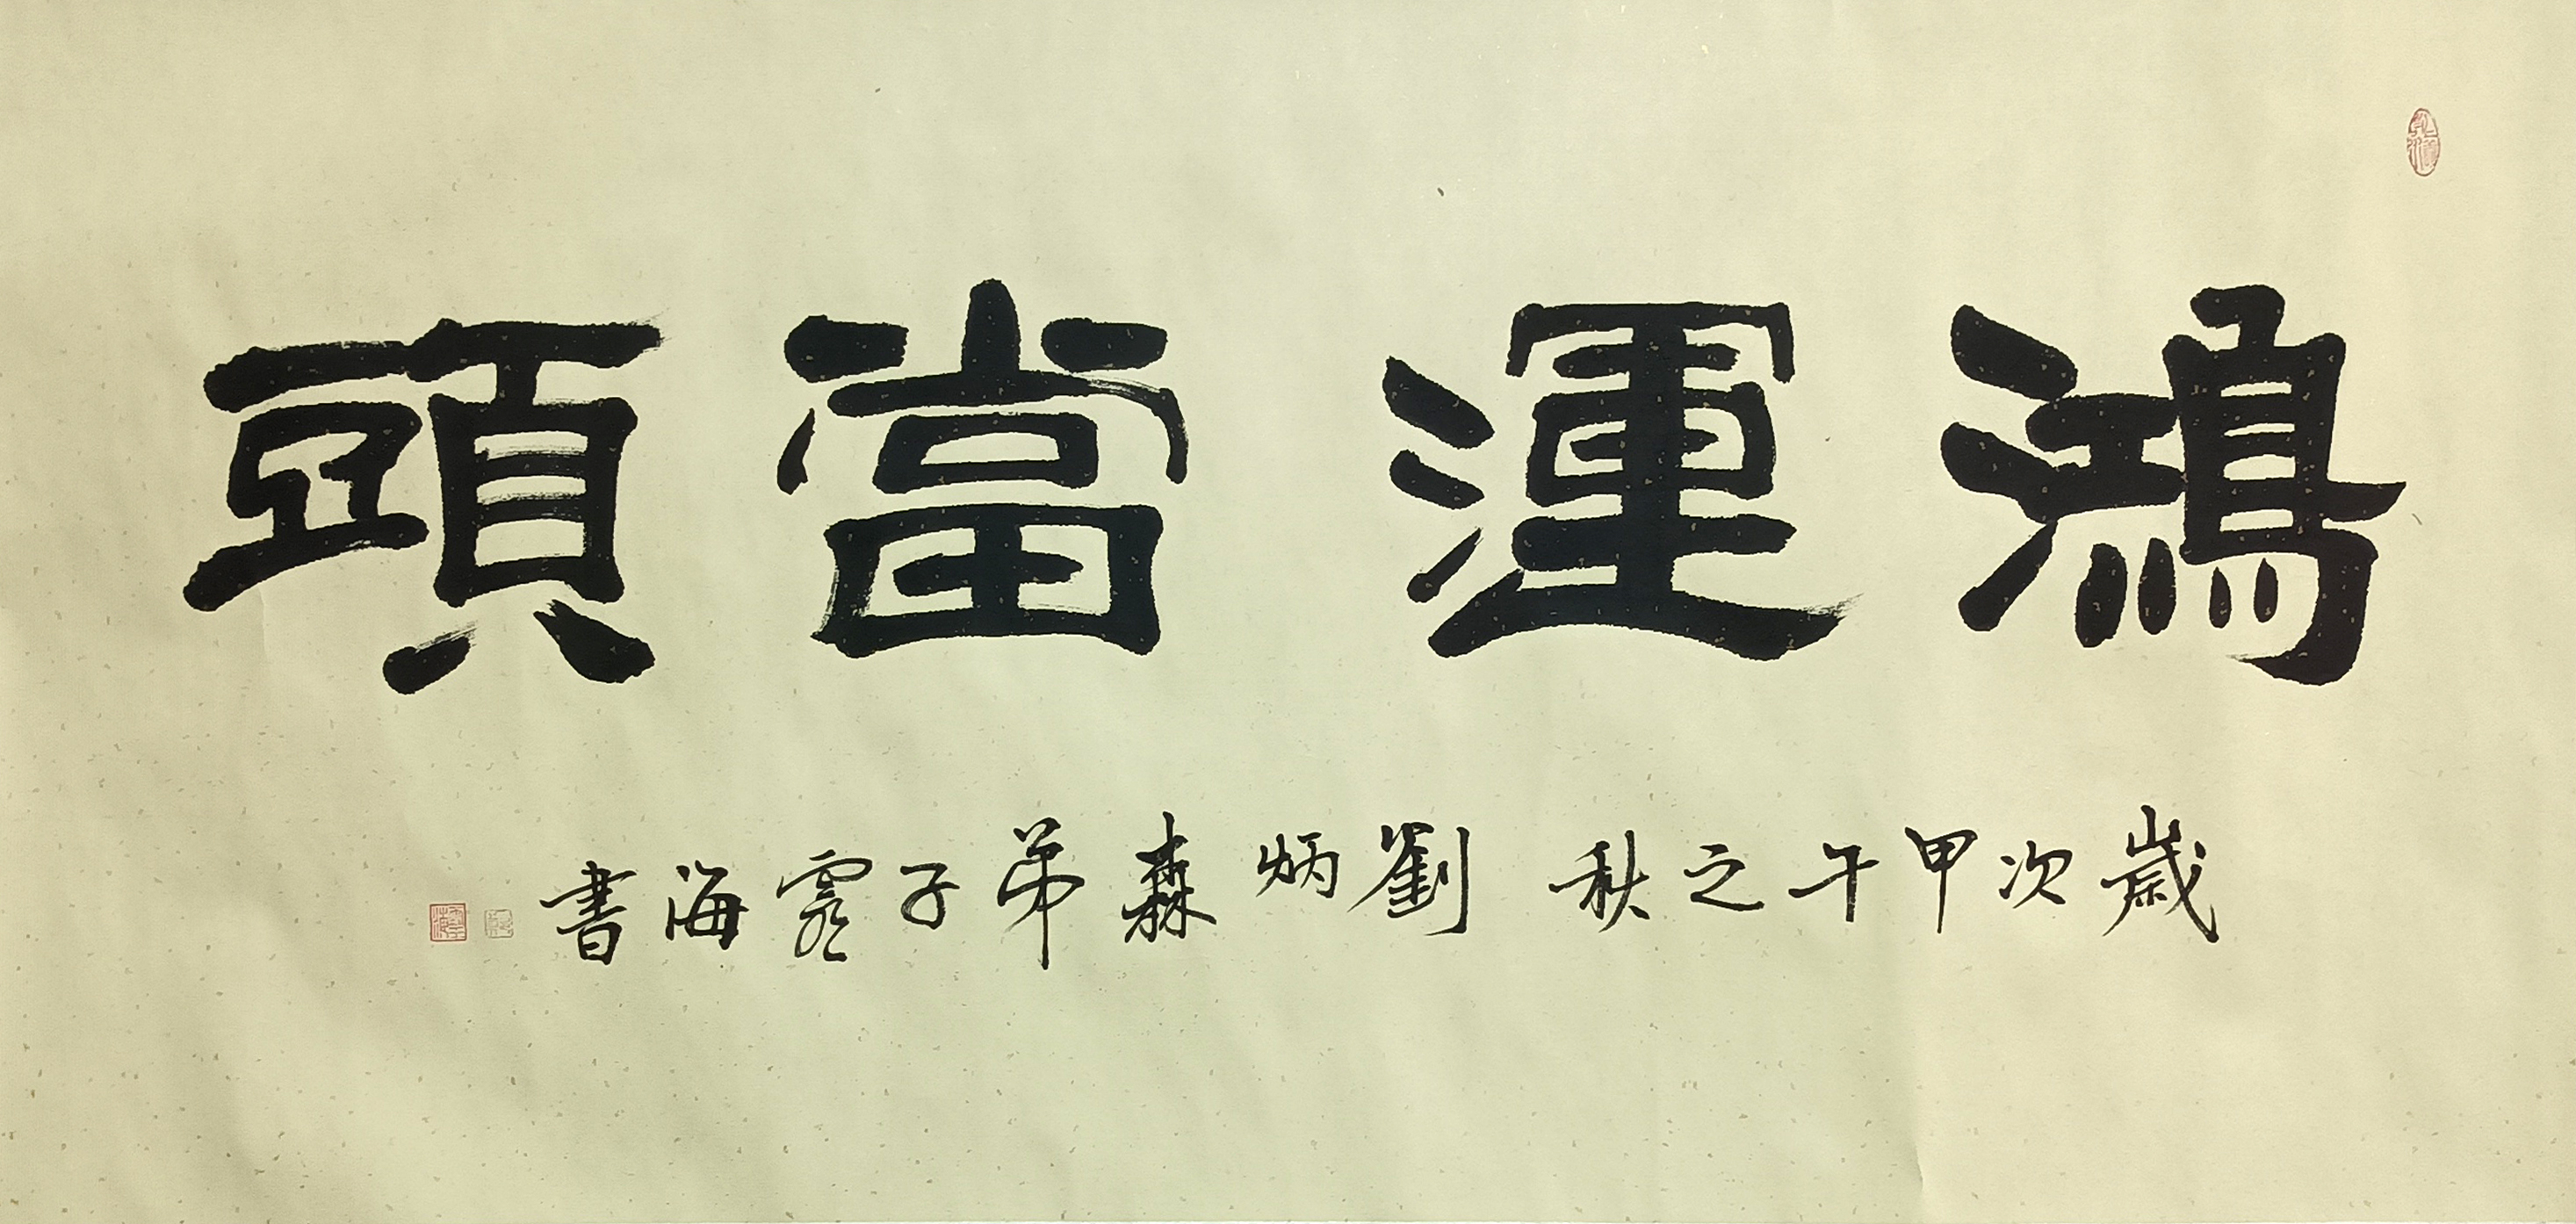 鴻運當頭
歲次甲午之秋 劉炳森弟子雲海書